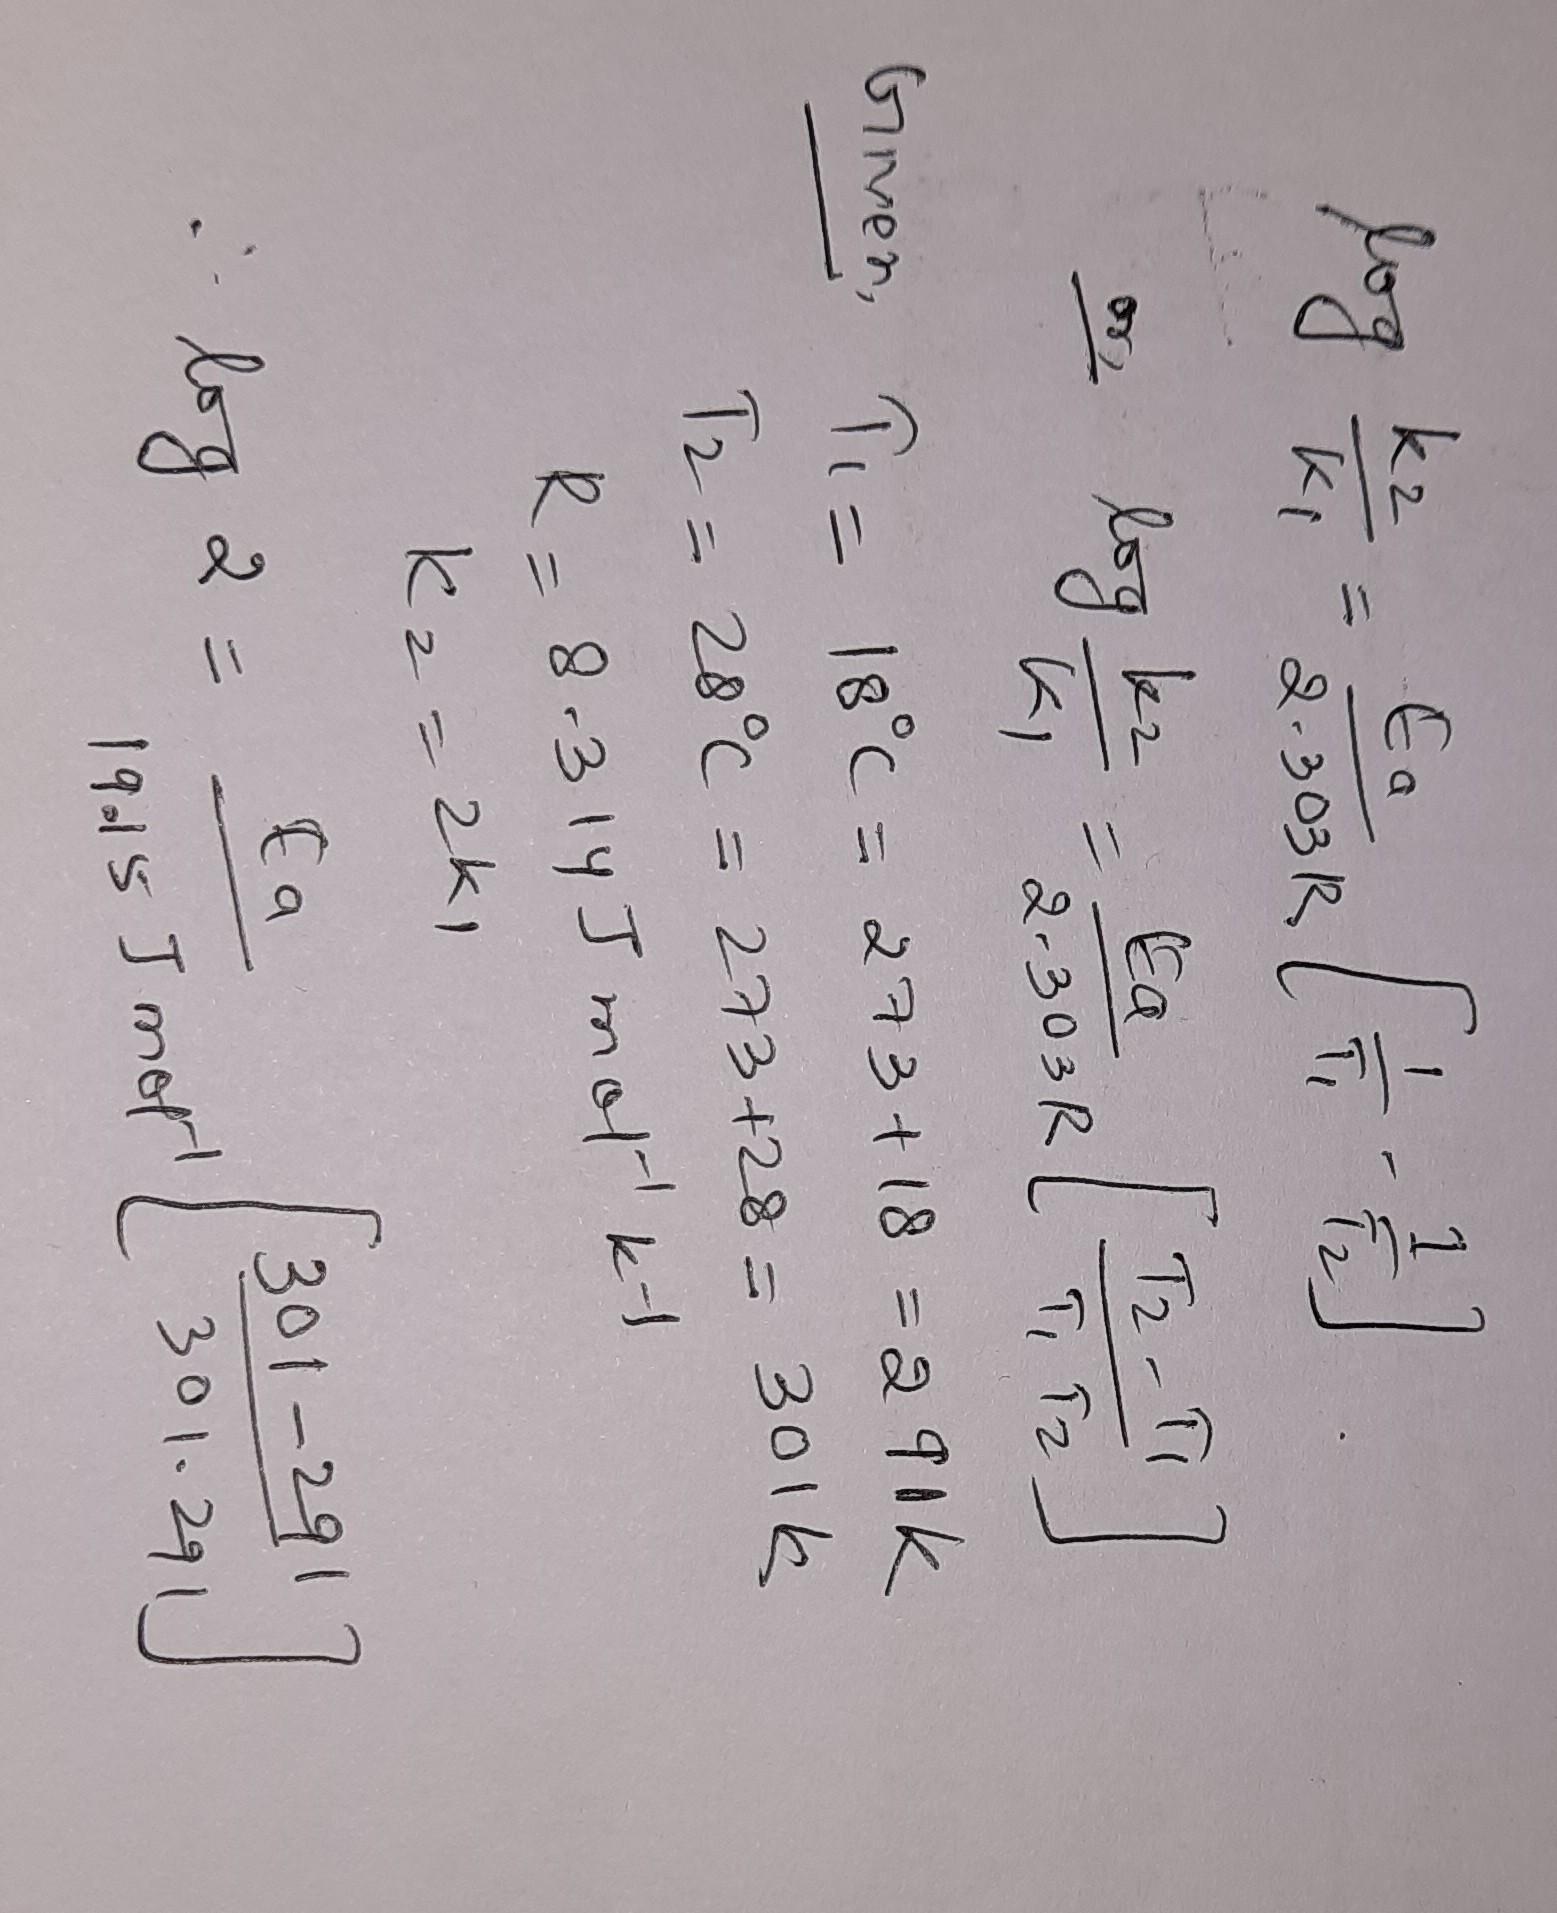 log k2/k1 = Ea/2.303R [1/T1 - 1/T2]
or, log k2/k1 = Ea/2.303R [T2-T1/T1 T2]
Given, T1 = 18°C = 273+18 = 291k
T2 = 28°C = 273+28 = 301k
R = 8.314 J mol-1 k-1
k2 = 2k1
∴ log 2 = Ea/19.15 J mol-1 [301-291/301.291]